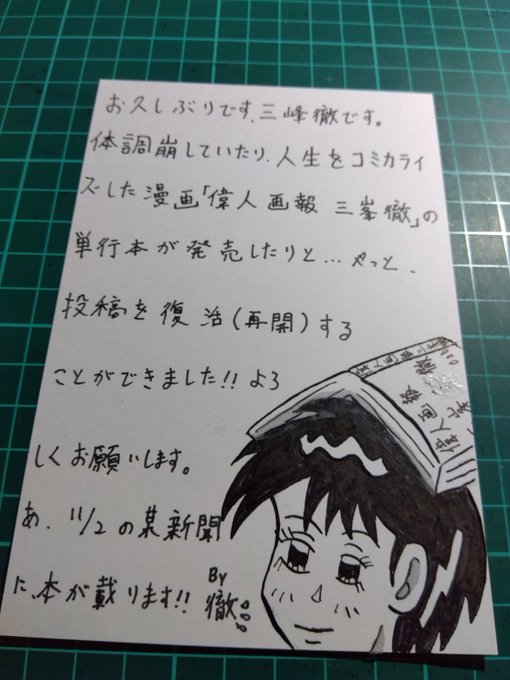 お久しぶりです、三峰徹です。
体調崩していたり、人生をコミカライ
ズした漫画「偉人画報 三峯徹」の
単行本が発売したりと…やっと、
投稿を復活(再開)する
ことができました!!よろ
しくお願いします。
あ、11/2の某新聞
に、本が載ります!!
By
徹
偉人画報